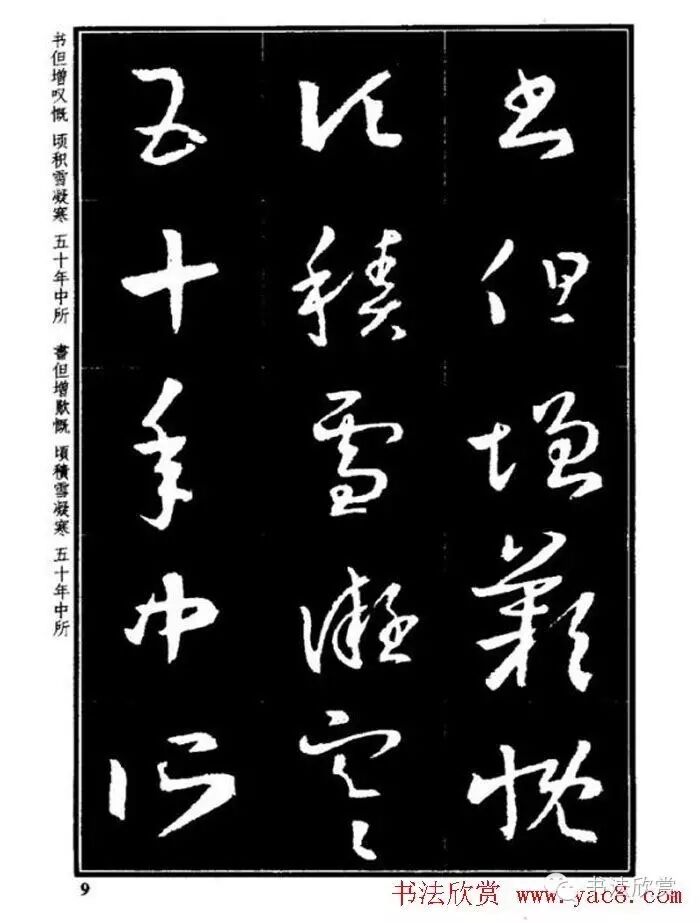 书但增叹慨 顷积雪凝寒 五十年中所 書但增歎慨 頃積雪凝寒 五十年中所
書但增歎慨
頃積雪凝寒
五十年中所
9
书法欣赏 www.yac8.com
书法欣赏